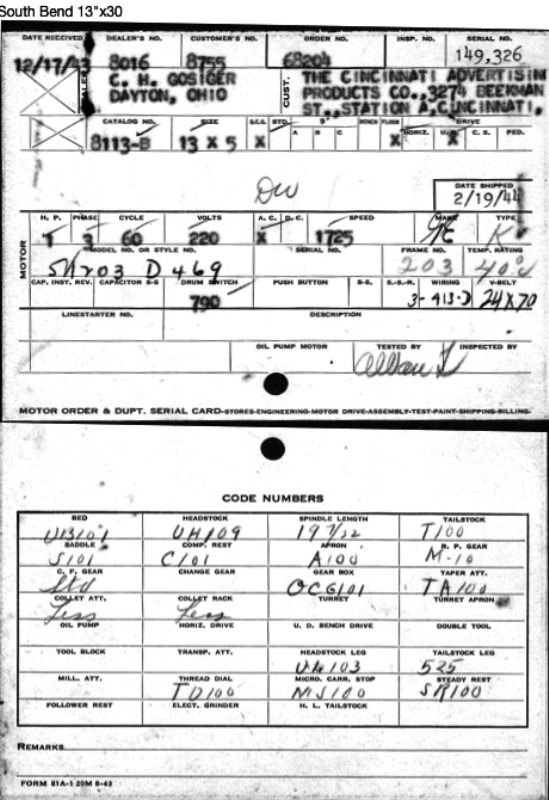 South Bend 13"x30
DATE RECEIVED DEALER'S NO. CUSTOMER'S NO. ORDER NO. INSP. NO. SERIAL NO.
12/17/43 8016 8755 68204 149,326
DEALER C. H. GOSIGER CUST. THE CINCINNATI ADVERTISIN
DAYTON, OHIO PRODUCTS CO., 3274 BEEKMAN
ST., STATION A, CINCINNATI,
CATALOG NO. SIZE Q.C.G. STD. 9" BENCH FLOOR DRIVE
A B C HORIZ. U.D. C.S. PED.
8113-B 13 X 5 X X X
DATE SHIPPED
2/19/44
MOTOR
H. P. PHASE CYCLE VOLTS A. C. D. C. SPEED MAKE TYPE
1 3 60 220 X 1725 GE K
MODEL NO. OR STYLE NO. SERIAL NO. FRAME NO. TEMP. RATING
203 40°
CAP. INST. REV. CAPACITOR S-S DRUM SWITCH PUSH BUTTON S-S. S.-S.-R. WIRING V-BELT
790 3-413-D 24X70
LINESTARTER NO. DESCRIPTION
OIL PUMP MOTOR TESTED BY INSPECTED BY
MOTOR ORDER & DUPT. SERIAL CARD-STORES-ENGINEERING-MOTOR DRIVE-ASSEMBLY-TEST-PAINT-SHIPPING-BILLING-
CODE NUMBERS
BED HEADSTOCK SPINDLE LENGTH TAILSTOCK
UB101 UH109 19 7/32 T100
SADDLE COMP. REST APRON R. P. GEAR
S101 C101 A100 M-10
C. F. GEAR CHANGE GEAR GEAR BOX TAPER ATT.
Std OCG101 TA100
COLLET ATT. COLLET RACK TURRET TURRET APRON
Less Less
OIL PUMP HORIZ. DRIVE U. D. BENCH DRIVE DOUBLE TOOL
TOOL BLOCK TRANSP. ATT. HEADSTOCK LEG TAILSTOCK LEG
UH103 525
MILL. ATT. THREAD DIAL MICRO. CARR. STOP STEADY REST
TD100 MS100 SR100
FOLLOWER REST ELECT. GRINDER H. L. TAILSTOCK
REMARKS
FORM 81A-1 20M 8-43